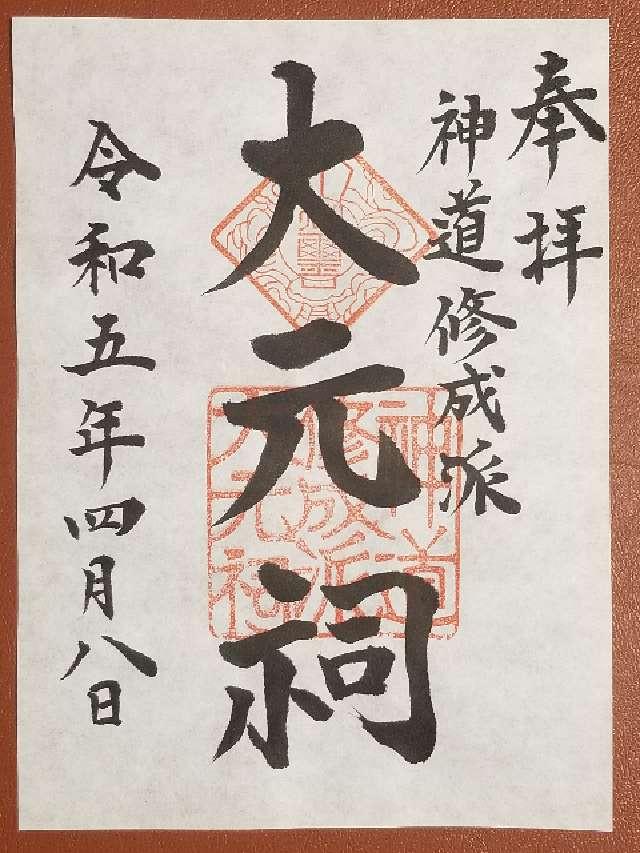 奉拝
神道修成派
大元祠
令和五年四月八日
神道
修成派
大元祠